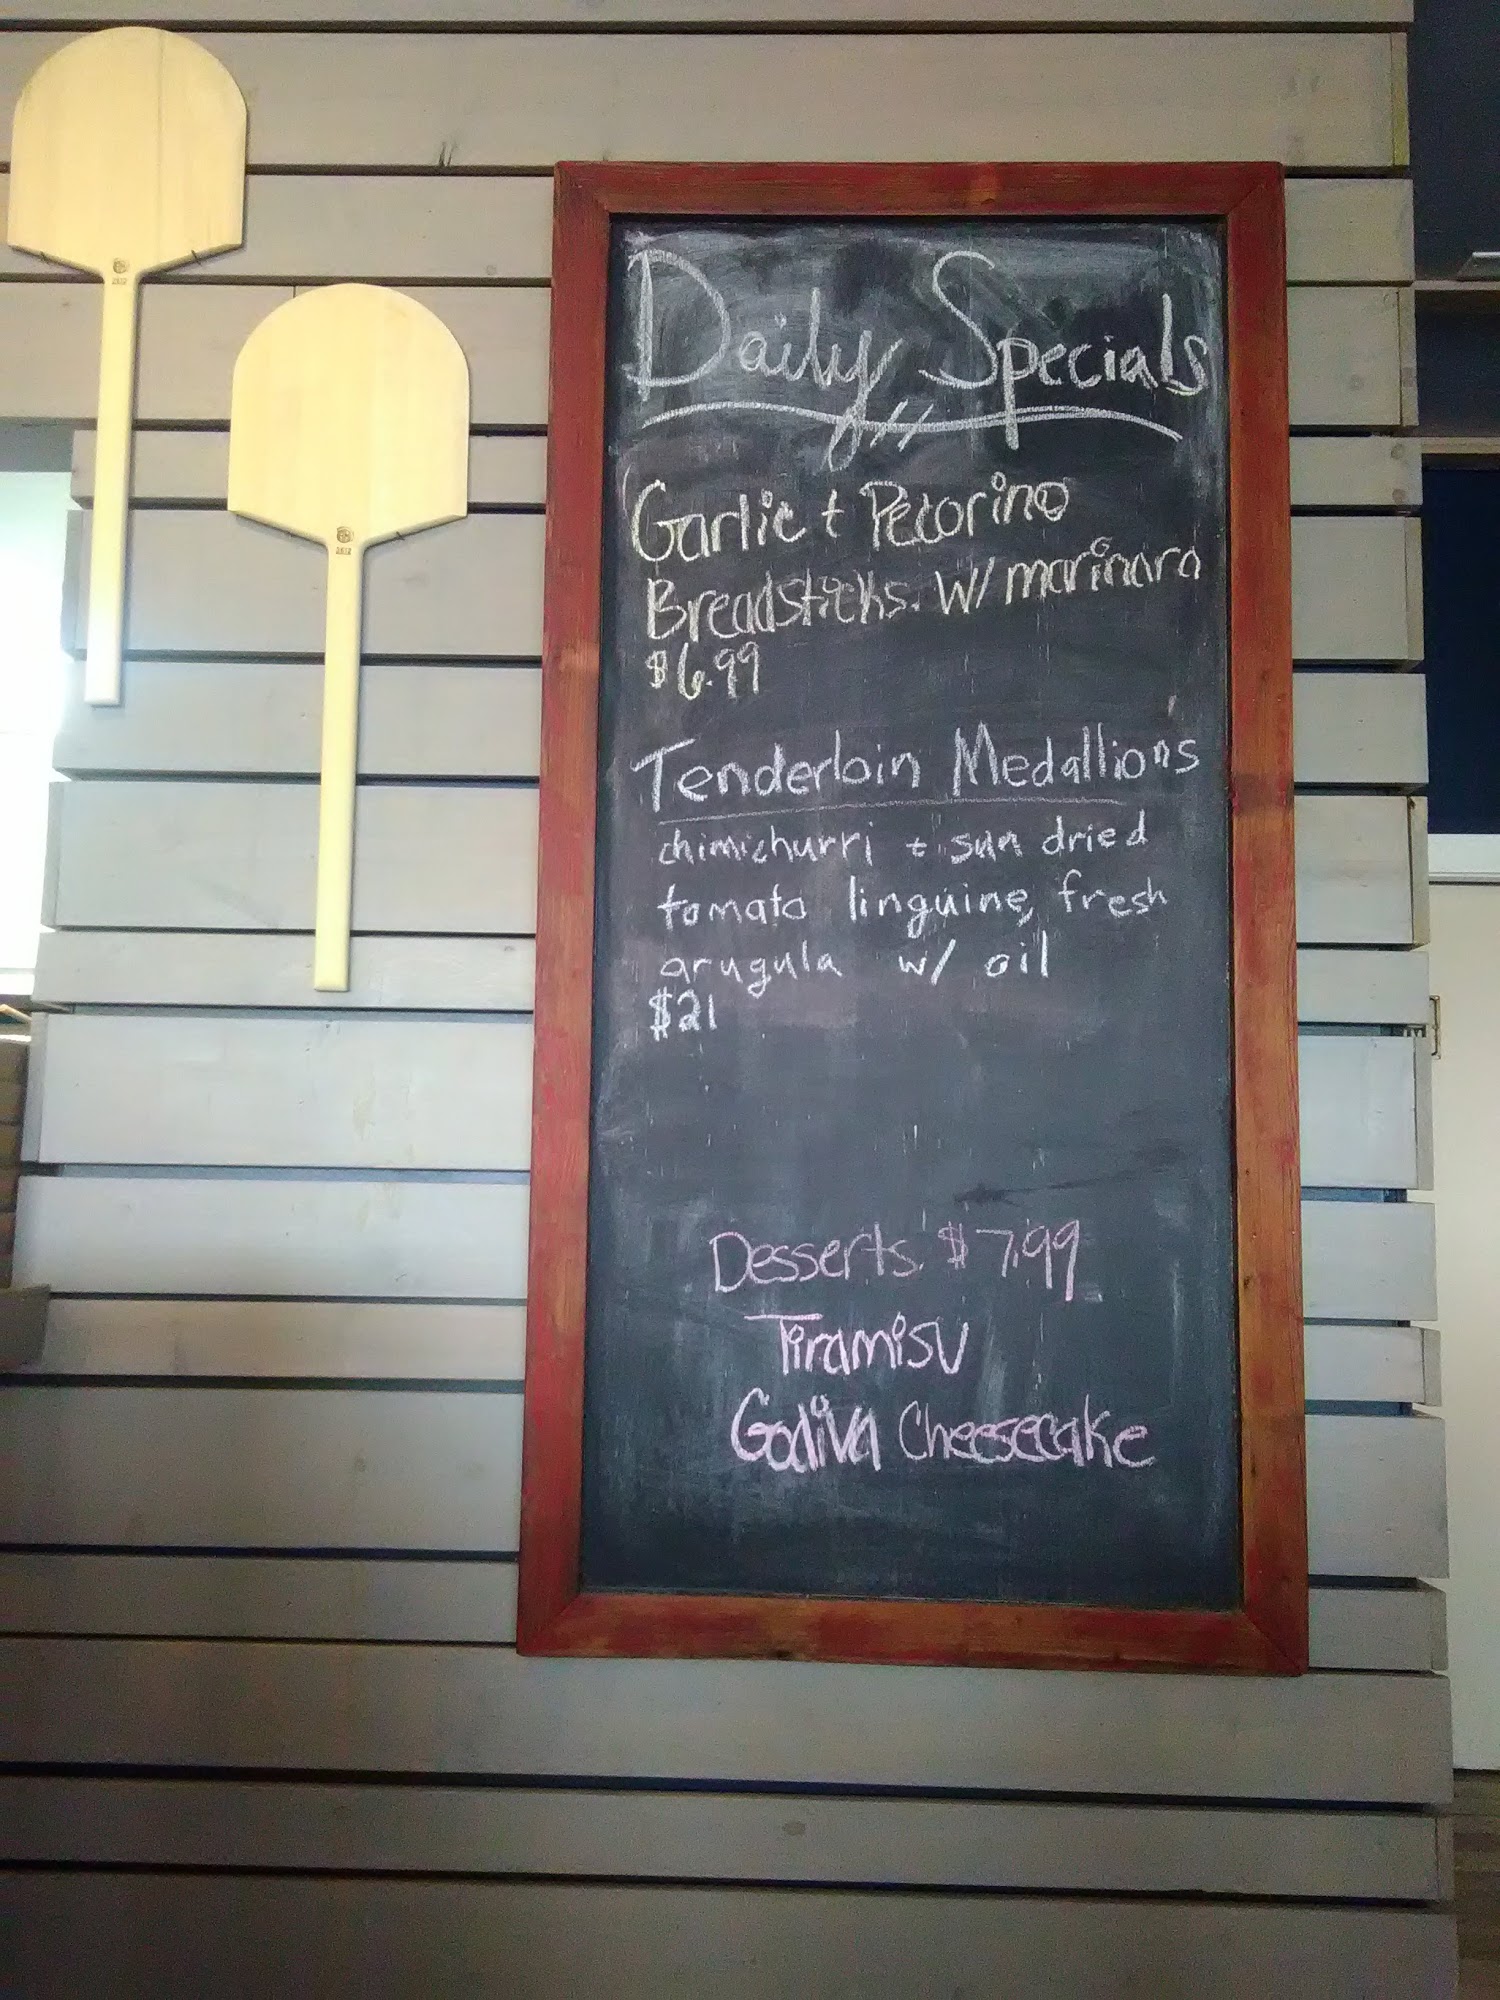 Daily Specials
Garlic + Pecorino
Breadsticks. W/ marinara
$6.99
Tenderloin Medallion's
chimichurri + sun dried
tomato linguine, fresh
arugula w/ oil
$21
Desserts $7.99
Tiramisu
Godiva Cheesecake
2612
2612